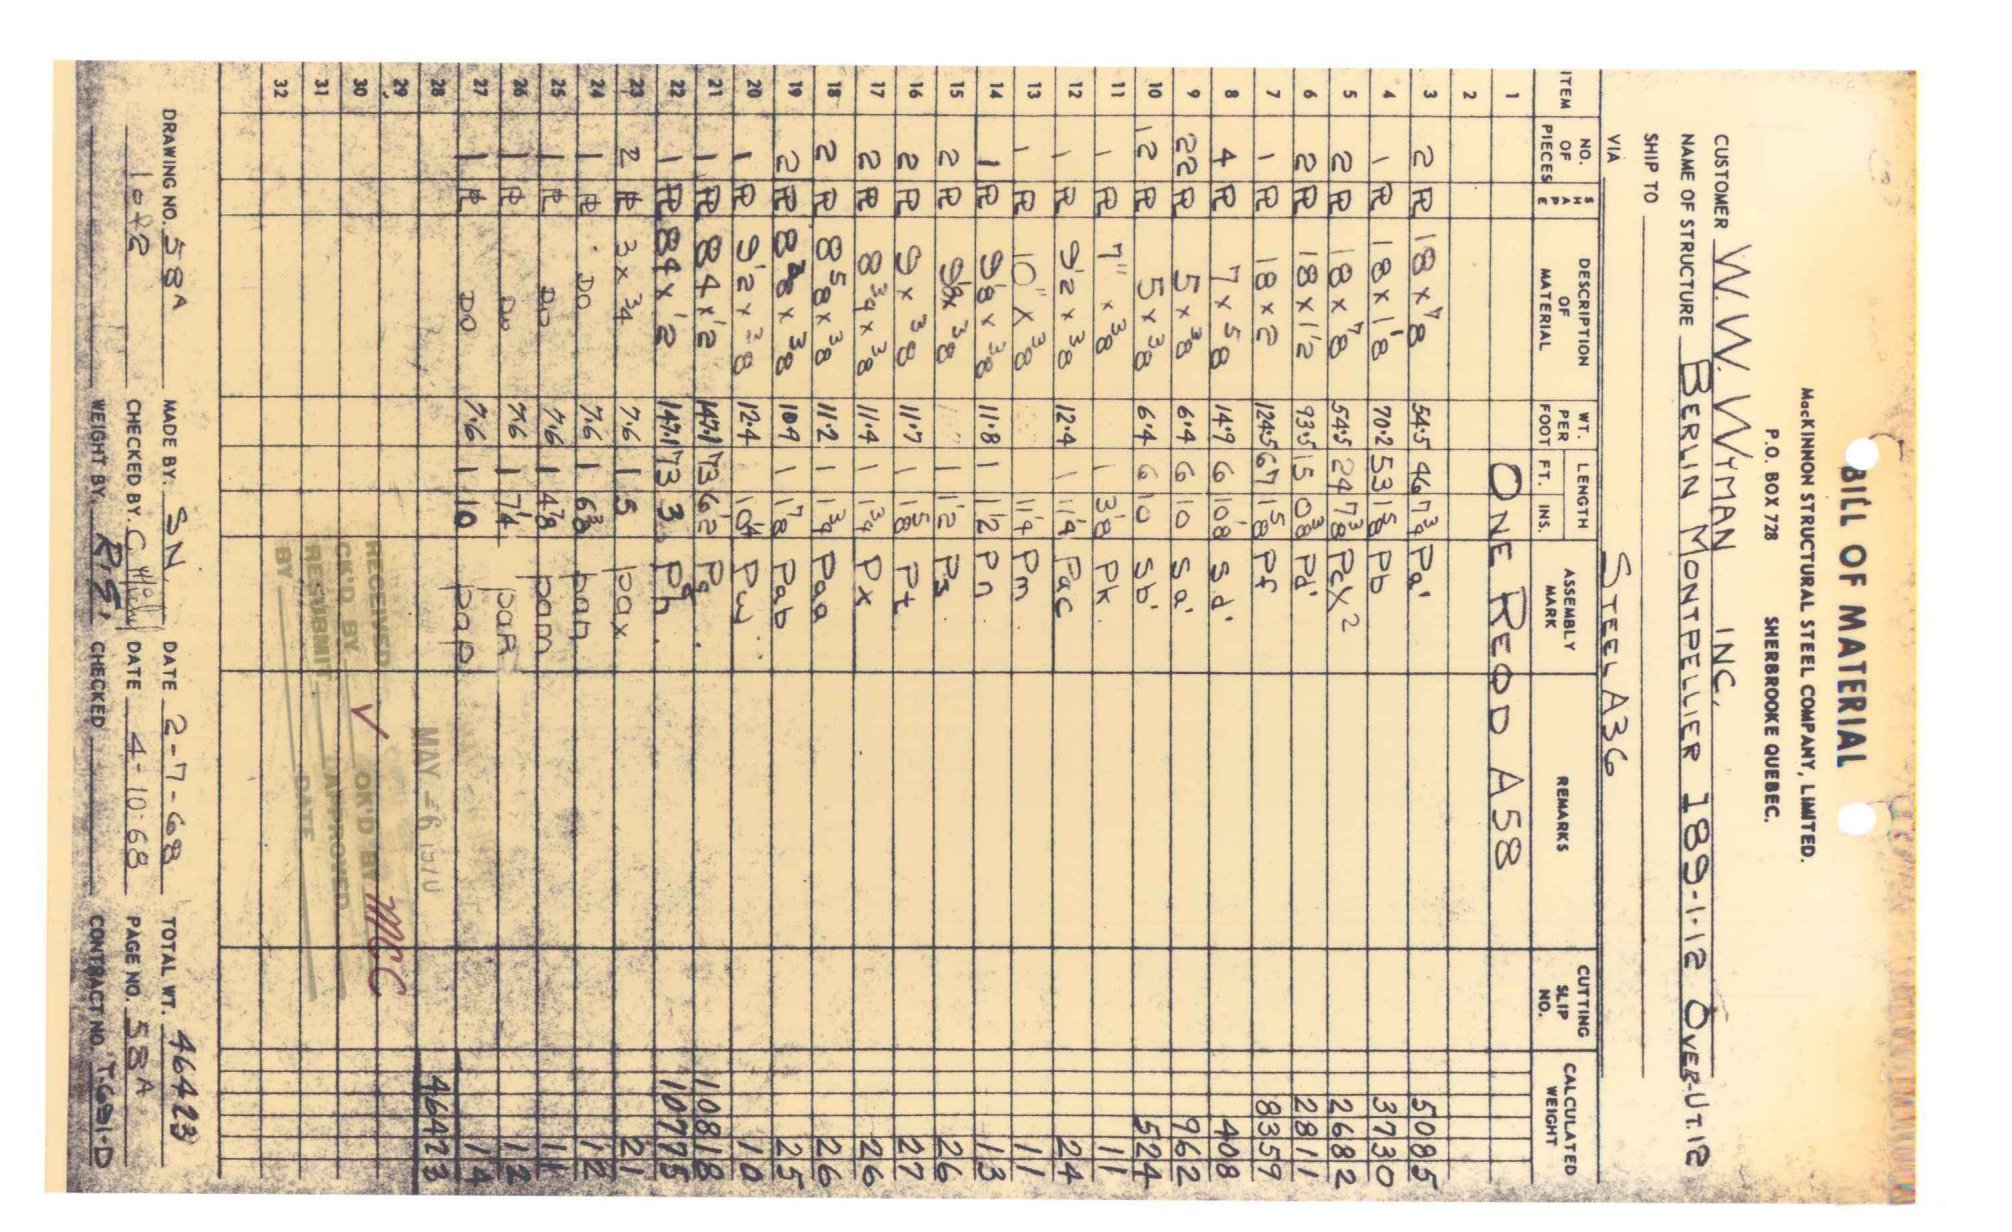 BILL OF MATERIAL
MacKINNON STRUCTURAL STEEL COMPANY, LIMITED.
P.O. BOX 728 SHERBROOKE QUEBEC.
CUSTOMER W. W. WYMAN INC.
NAME OF STRUCTURE BERLIN MONTPELLIER 189-1-12 OVER-UT.12
SHIP TO
VIA STEEL A36
ITEM NO. OF PIECES SHAPE DESCRIPTION OF MATERIAL WT. PER FOOT LENGTH FT. INS. ASSEMBLY MARK REMARKS CUTTING SLIP NO. CALCULATED WEIGHT
1 ONE REQD A58
2
3 2 PL 18 x 7/8 54.5 46 7 3/4 Pa' 5085
4 1 PL 18 x 1 1/8 70.2 53 1 5/8 Pb 3730
5 2 PL 18 x 7/8 54.5 24 7 3/8 Pcx2 2682
6 2 PL 18 x 1 1/2 93.5 15 0 3/8 Pd' 2811
7 1 PL 18 x 2 124.5 67 1 5/8 Pf 8359
8 4 PL 7 x 5/8 14.9 6 10 1/8 Sd' 408
9 22 PL 5 x 3/8 6.4 6 10 Sa' 962
10 12 PL 5 x 3/8 6.4 6 10 Sb' 524
11 1 PL 7" x 3/8 1 3 1/8 Pk 11
12 1 PL 9 1/2 x 3/8 12.4 1 11 1/4 Pac 24
13 1 PL 10" x 3/8 11 1/4 Pm 11
14 1 PL 9 1/8 x 3/8 11.8 1 1 1/2 Pn 13
15 2 PL 9 1/8 x 3/8 1 1 1/2 Ps 26
16 2 PL 9 x 3/8 11.7 1 1 5/8 Pt 27
17 2 PL 8 3/4 x 3/8 11.4 1 1 3/4 Px 26
18 2 PL 8 5/8 x 3/8 11.2 1 1 3/4 Paa 26
19 2 PL 8 3/8 x 3/8 10.9 1 1 7/8 Pab 25
20 1 PL 9 1/2 x 3/8 12.4 10 1/4 Pw 10
21 1 PL 84 x 1/2 147.1 73 6 1/2 Pg 10818
22 1 PL 84 x 1/2 147.1 73 3 Ph 10775
23 2 PL 3 x 3/4 7.6 1 5 pax 21
24 1 PL DO 7.6 1 6 3/8 pan 12
25 1 PL DO 7.6 1 4 7/8 pam 11
26 1 PL DO 7.6 1 7 1/4 12
27 1 PL DO 7.6 1 10 pap 14
28 46423
29
30
31
32
MAY -6 1970
RECEIVED
CK'D BY OK'D BY MCC
RESUBMIT APPROVED
BY DATE
DRAWING NO. 58A MADE BY. SN. DATE 2-7-68 TOTAL WT. 46423
1042 CHECKED BY. C. DATE 4-10-68 PAGE NO. 58A
WEIGHT BY. CHECKED CONTRACT NO.